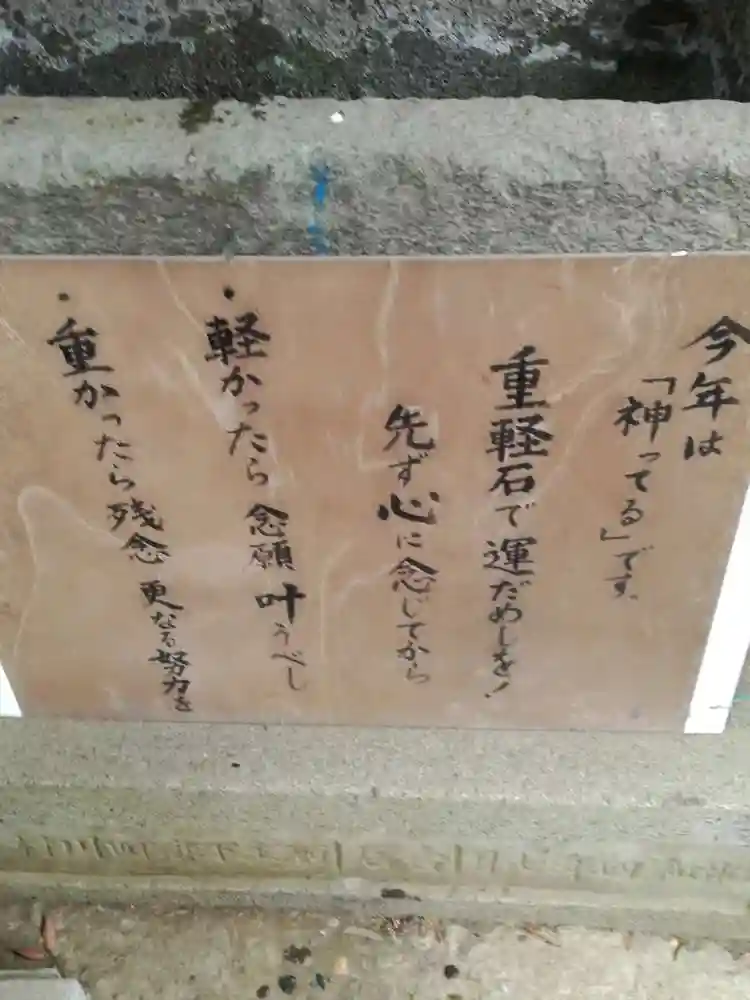 今年は
「神ってる」です。
重軽石で運だめしを!
先ず心に念じてから
・軽かったら 念願 叶うべし
・重かったら 残念 更なる努力を